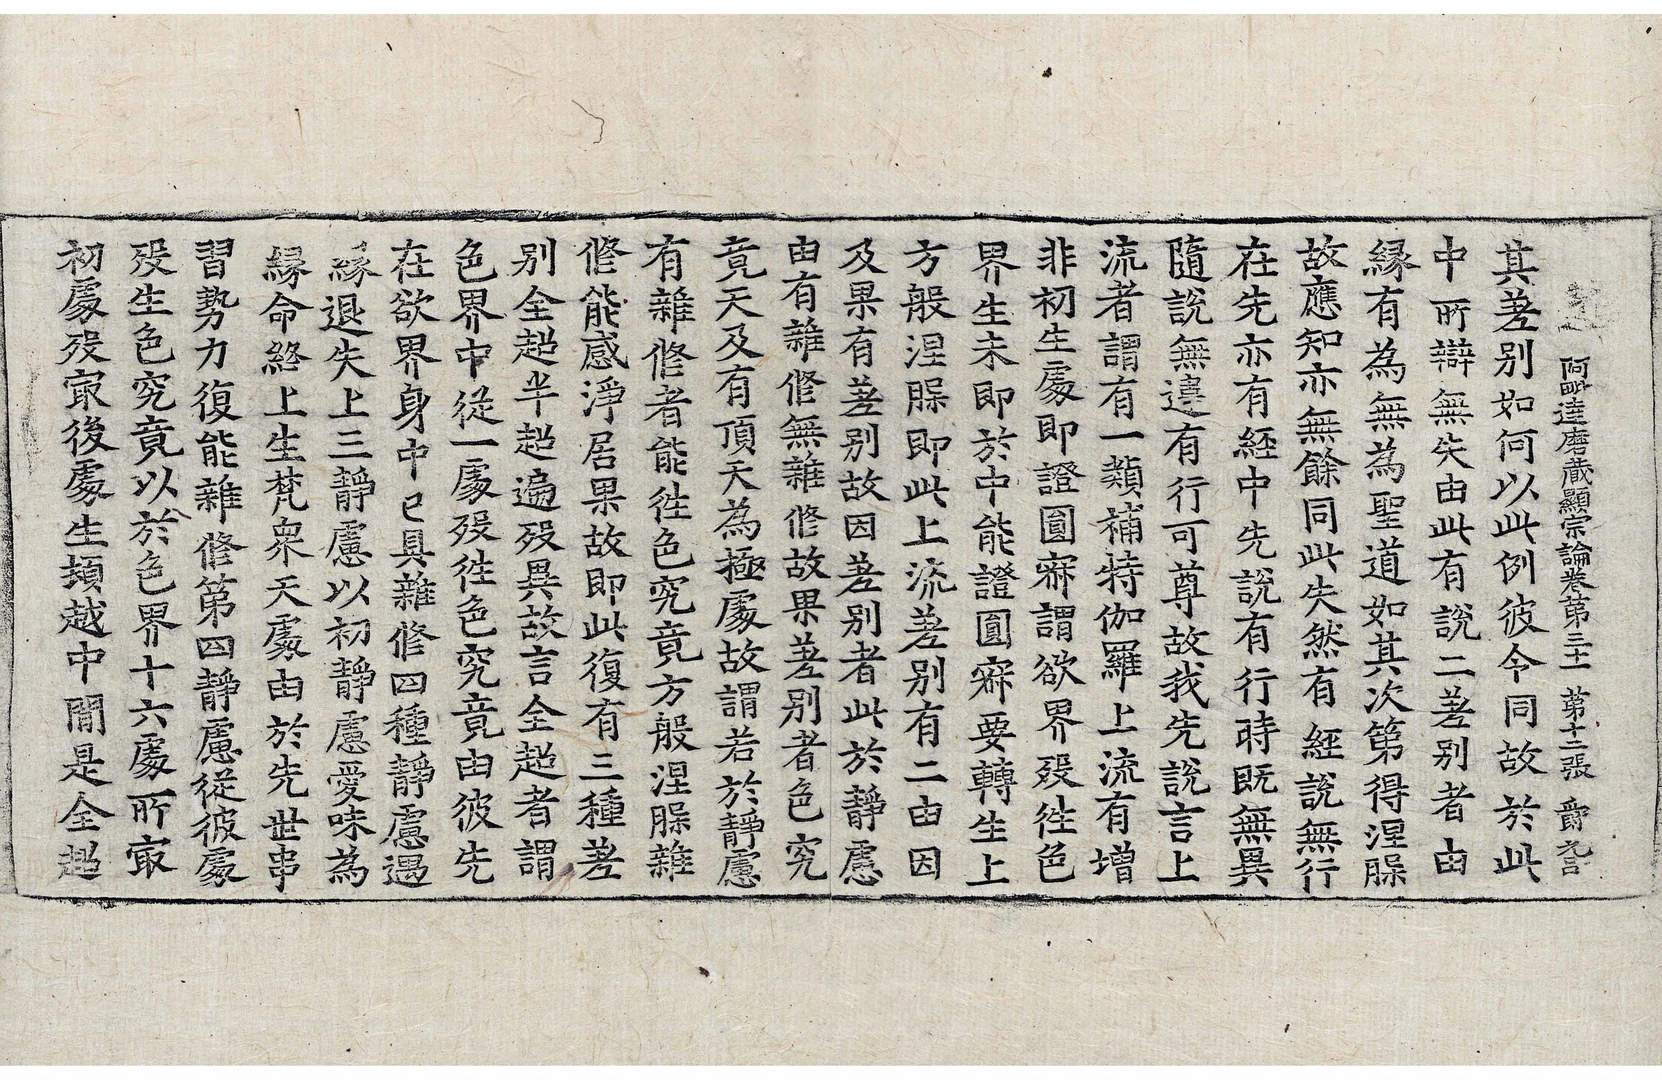 阿毗達磨藏顯宗論卷第三十一 第十二張 爵 元言
其差別如何以此例彼令同故於此
中所辯無失由此有說二差別者由
緣有為無為聖道如其次第得涅槃
故應知亦無餘同此失然有經說無行
在先亦有經中先說有行時旣無異
隨說無違有行可尊故我先說言上
流者謂有一類補特伽羅上流有增
非初生處即證圓寂謂欲界歿徃色
界生未即於中能證圓寂要轉生上
方般涅槃即此上流差別有二由因
及果有差別故因差別者此於靜慮
由有雜修無雜修故果差別者色究
竟天及有頂天為極處故謂若於靜慮
有雜修者能徃色究竟方般涅槃雜
修能感淨居果故即此復有三種差
別全超半超遍歿異故言全超者謂
色界中從一處歿徃色究竟由彼先
在欲界身中已具雜修四種靜慮遇
緣退失上三靜慮以初靜慮愛味為
緣命終上生梵衆天處由於先世串
習勢力復能雜修第四靜慮從彼處
歿生色究竟以於色界十六處所㝡
初處歿㝡後處生頓越中間是全超